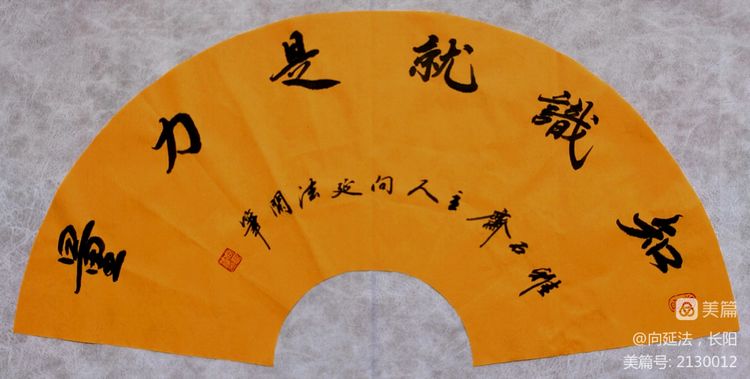 知識就是力量
雅石齋主人向延法閑筆
美篇
@向延法，长阳
美篇号: 2130012